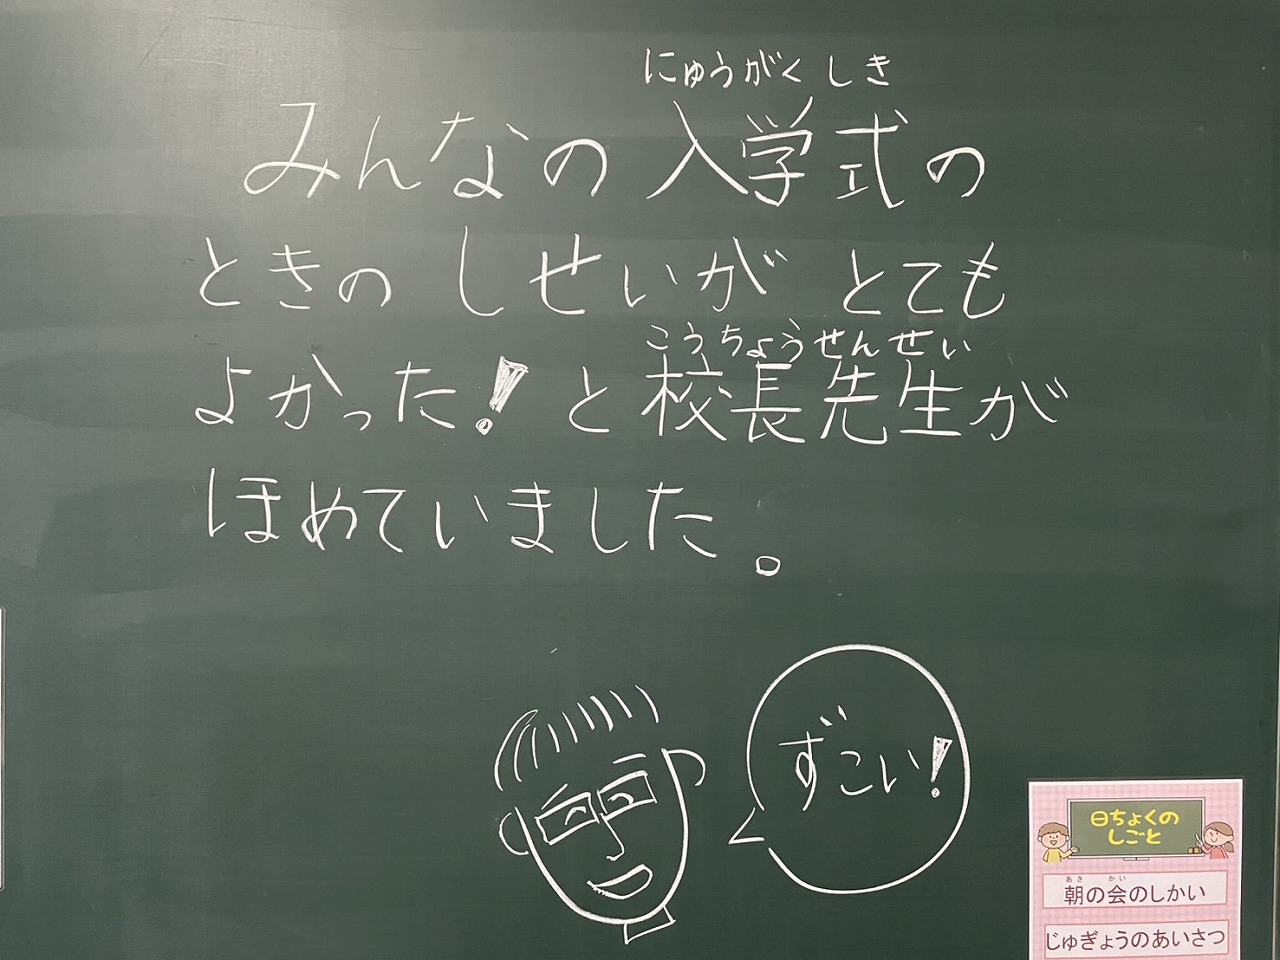 にゅうがくしき
みんなの入学式の
ときのしせいがとても
こうちょうせんせい
よかった!と校長先生が
ほめていました。
ずこい!
日ちょくの
しごと
あさ かい
朝の会のしかい
じゅぎょうのあいさつ